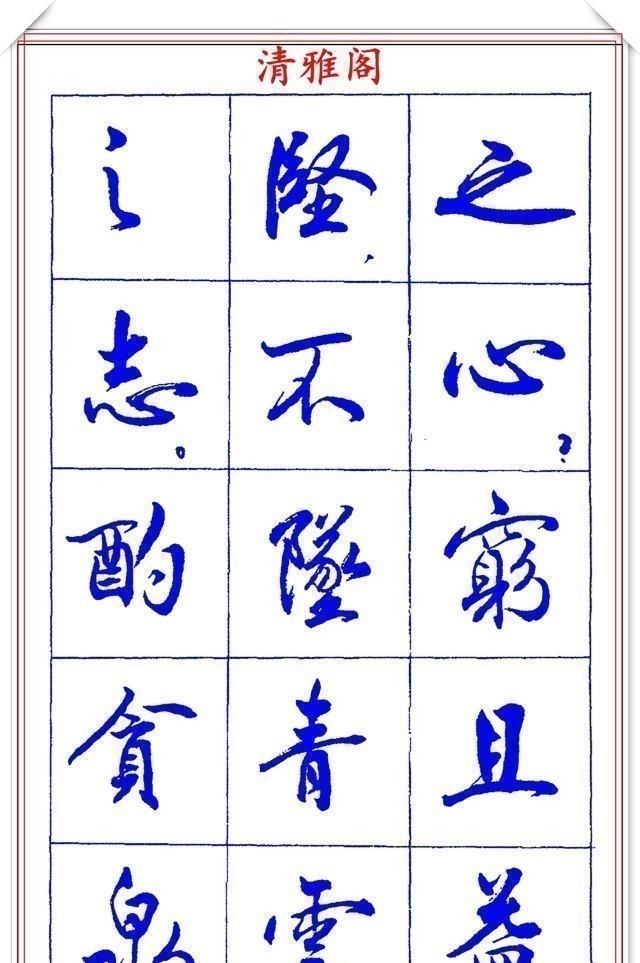 清雅阁
之心?窮且益
堅,不墜青雲
之志。酌貪泉